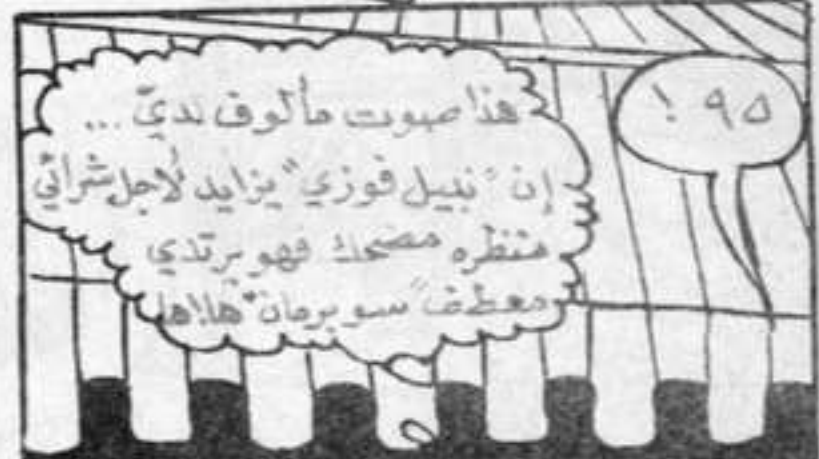 ٩٥ !
هذا صوت مألوف لديّ ...
إن "نبيل فوزي" يزايد لأجل شرائي
منظره مضحك فهو يرتدي
معطف "سوبرمان" هاها